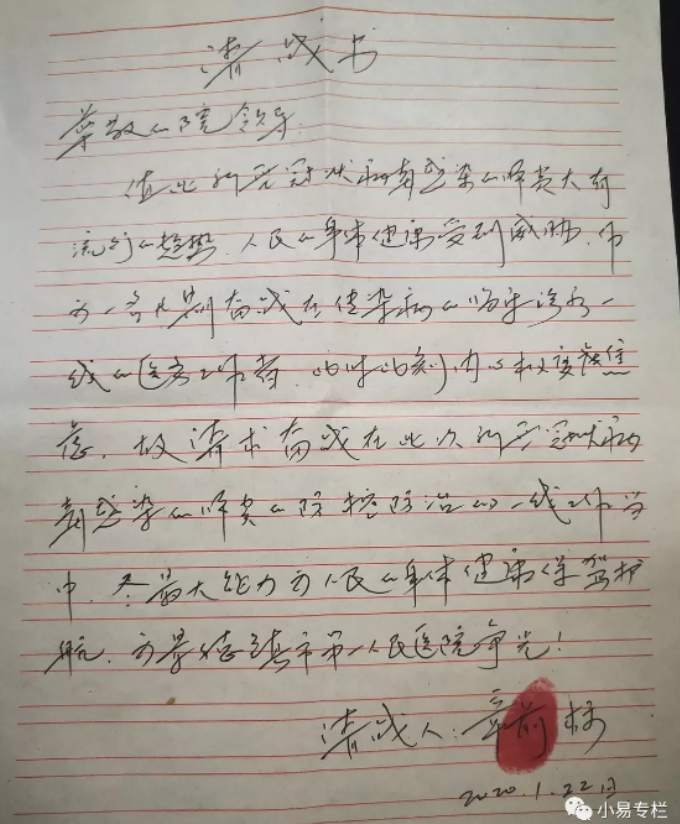 请战书
尊敬的院领导:
值此新型冠状病毒感染的肺炎大有
流行的趋势，人民的身体健康受到威胁，作
为一名长期奋战在传染病的临床诊疗一
线的医务工作者，此时此刻内心极度焦
急，故请求奋战在此次新型冠状病
毒感染的肺炎的防控防治的一线工作当
中，尽最大能力为人民的身体健康保驾护
航，为景德镇市第一人民医院争光！
请战人：章前
2020.1.22日
小易专栏